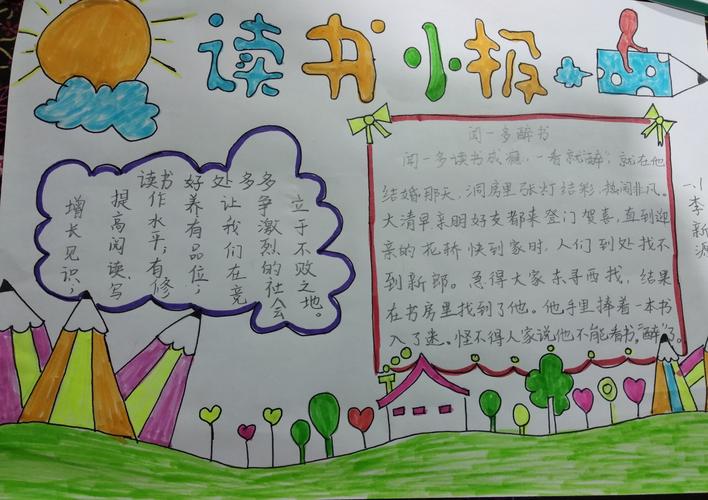 读书小报
读书好处多多
增长见识,
提高阅读、写
作水平,有修
养有品位,
让我们在竞
争激烈的社会
立于不败之地。
闻一多醉书
闻一多读书成瘾,一看就“醉”,就在他
结婚那天,洞房里张灯结彩,热闹非凡。
大清早亲朋好友都来登门贺喜,直到迎
亲的花轿快到家时,人们到处找不
到新郎。急得大家东寻西找,结果
在书房里找到了他。他手里捧着一本书
入了迷。怪不得人家说他不能看书,“醉”了。
李新源